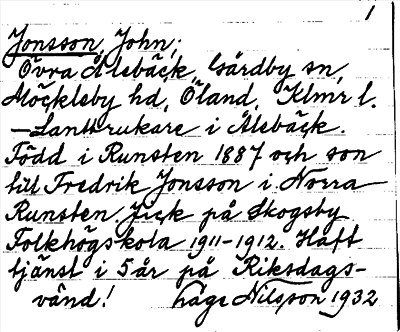 1
Jonsson, John;
Övra Ålebäck, Gårdby sn,
Möckleby hd, Öland, Klmr l.
—Lantbrukare i Ålebäck.
Född i Runsten 1887 och son
till Fredrik Jonsson i Norra
Runsten. Gick på Skogsby
Folkhögskola 1911-1912. Haft
tjänst i 5 år på Riksdags-
vånd! Nilsson 1932